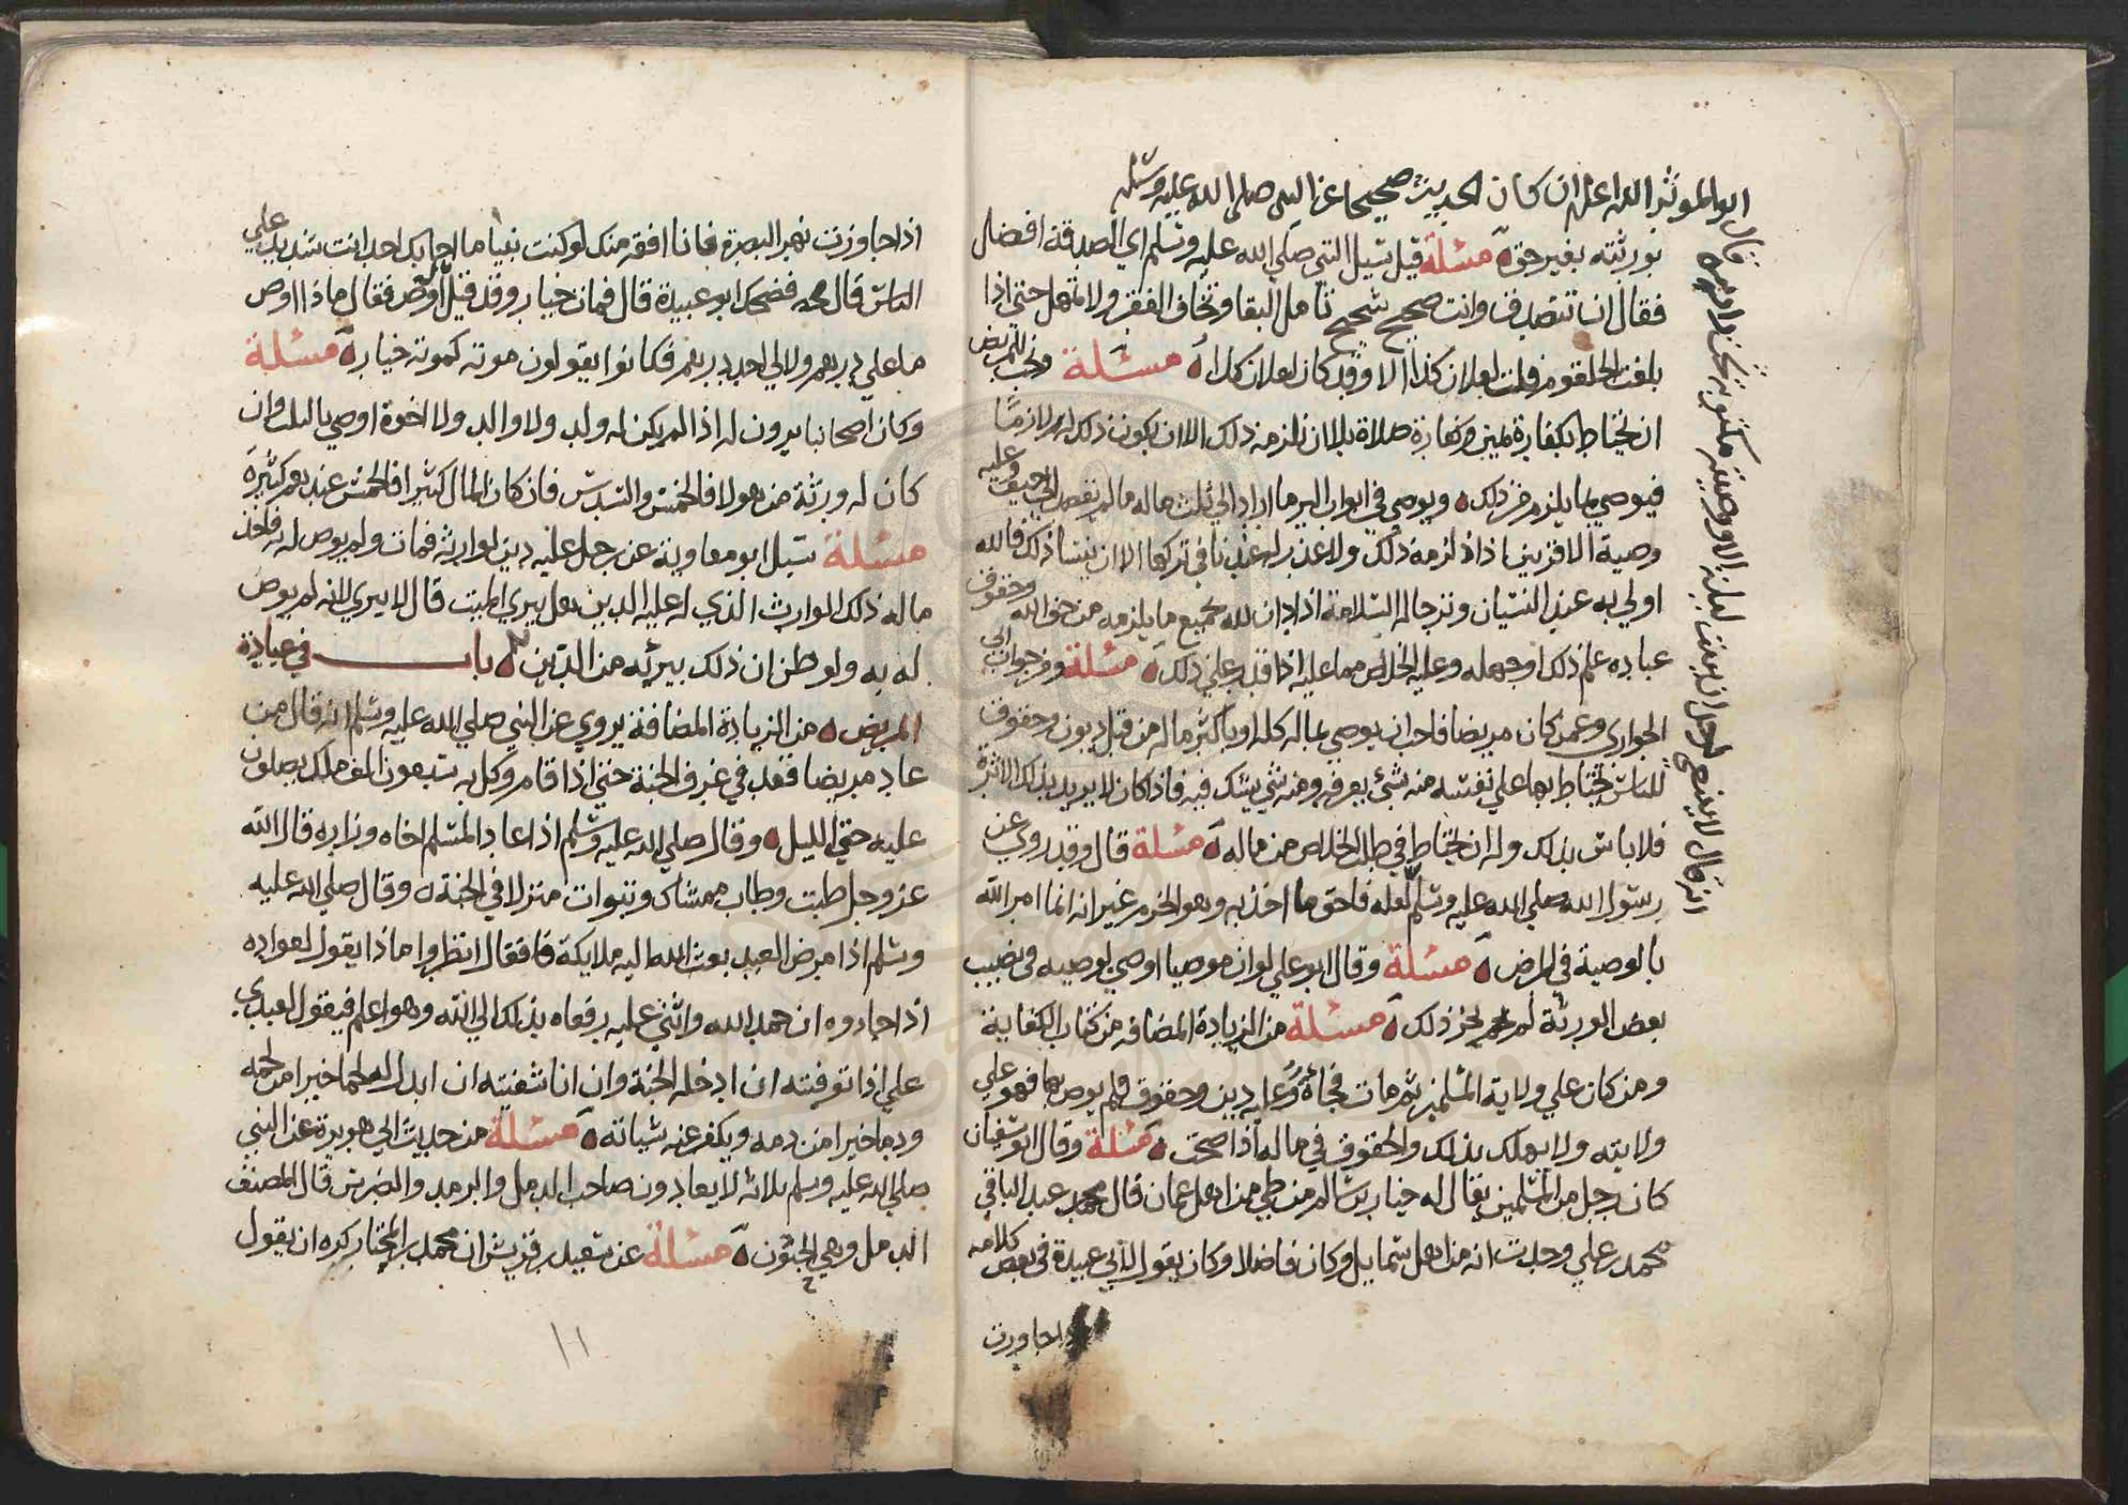 انه قال لا ينبغي لرجل ان يبيت ليلة الا ووصيته مكتوبة تحت راسه قال
ابو المؤثر الله اعلم ان كان الحديث صحيحا عن النبي صلى الله عليه وسلم
بورثته بغير حق مسئلة قيل سيل النبي صلي الله عليه وسلم اي الصدقة افضل
فقال ان تتصدق وانت صحيح شحيح تامل البقا وتخاف الفقر ولا تمهل حتى اذا
بلغت الحلقوم قلت لفلان كذا الا وقد كان لفلان كذا مسئلة ونحب للمريض
ان يحتاط بكفارة يمين وكفارة صلاة بلا ان تلزمه ذلك الا ان يكون ذلك له لازما
فيوصي بما يلزم من ذلك ويوصي في ابواب البر ما اراد الي ثلث ماله ما لم يقصد الي الحيف وعليه
وصية الاقربين اذا لزمه ذلك ولا عذر له عندنا في تركها الا ان ينسا ذلك فالله
اولي به عند النسيان ونرجا له السلامة اذا دان لله بجميع ما يلزمه من حق الله وحقوق
عباده علم ذلك او جهله وعليه الخلاص مما عليه اذا قدر علي ذلك مسئلة ومن جواب ابي
الحواري وعمن كان مريضا فاحب ان يوصي بماله كله او باكثر ماله من قبل ديون وحقوق
للناس يحتاط بها علي نفسه منه شي يعرفه ومنه شي يشك فيه فاذا كان لا يريد بذلك الاثرة
فلا باس بذلك وله ان يحتاط في طلب الخلاص من ماله مسئلة قال وقد روي عن
رسول الله صلي الله عليه وسلم لعله فاحق ما اخذ به وهو الحزم غير انه انما امر الله
بالوصية في المرض مسئلة وقال ابو علي لو ان موصيا اوصي لوصيه في نصيب
بعض الورثة لم يجز ذلك مسئلة من الزيادة المضافه من كتاب الكفاية
ومن كان علي ولاية المسلمين ثم مات فجاة وعليه دين وحقوق ولم يوص بها فهو علي
ولايته ولا يهلك بذلك والحقوق في ماله اذا صحت مسئلة وقال ابو سفيان
كان رجل من المسلمين يقال له خيار بن سالم من طي من اهل عمان قال محمد عبد الباقي
محمد بن علي وجدت انه من اهل سمايل وكان فاضلا وكان يقول لابي عبيدة في بعض كلامه
اذا جاوزت
اذا جاوزت نهر البصرة فانا افقه منك لو كنت نبيا ما اجابك احد انت تشدد علي
الناس قال محمد فضحك ابو عبيدة قال فمات خيار وقد قيل له اوص فقال ماذا اوص
ما علي درهم ولا لي احد درهم فكانوا يقولون موته كموتة خيار مسئلة
وكان اصحابنا يرون له اذا لم يكن له ولد ولا والد ولا اخوة اوصي بالثلث وان
كان له ورثة من هولا فالخمس والسدس فان كان المال كثيرا فالخمس عندهم كثير
مسئلة سيل ابو معاوية عن رجل عليه دين لوارثه فمات ولم يوص له به فاخذ
ماله ذلك الوارث الذي له عليه الدين هل يبري الميت قال لا يبري لانه لم يوص
له به ولو ظن ان ذلك يبرئه من الدين باب في عيادة
المريض من الزيادة المضافة يروي عن النبي صلي الله عليه وسلم انه قال من
عاد مريضا قعد في غرف الجنة حتي اذا قام وكل به سبعون الف ملك يصلون
عليه حتي الليل وقال صلي الله عليه وسلم اذا عاد المسلم اخاه وزاره قال الله
عز وجل طبت وطاب ممشاك وتبوات منزلا في الجنة وقال صلي الله عليه
وسلم اذا مرض العبد بعث الله اليه ملايكة فقال انظروا ماذا يقول لعواده
اذا جاءوه ان حمد الله واثني عليه رفعاه بذلك الي الله وهو اعلم فيقول لعبدي
علي اذا توفيته ان ادخله الجنة وان انا شفيته ان ابدل له لحما خيرا من لحمه
ودما خيرا من دمه ويكفر عنه سياته مسئلة من حديث ابي هريرة عن النبي
صلي الله عليه وسلم ثلاثه لا يعادون صاحب الدمل والرمد والضرس قال المصنف
الدمل وهي الحبون مسئلة عن سعيد بن قريش ان محمد بن المختار كره ان يقول
١١